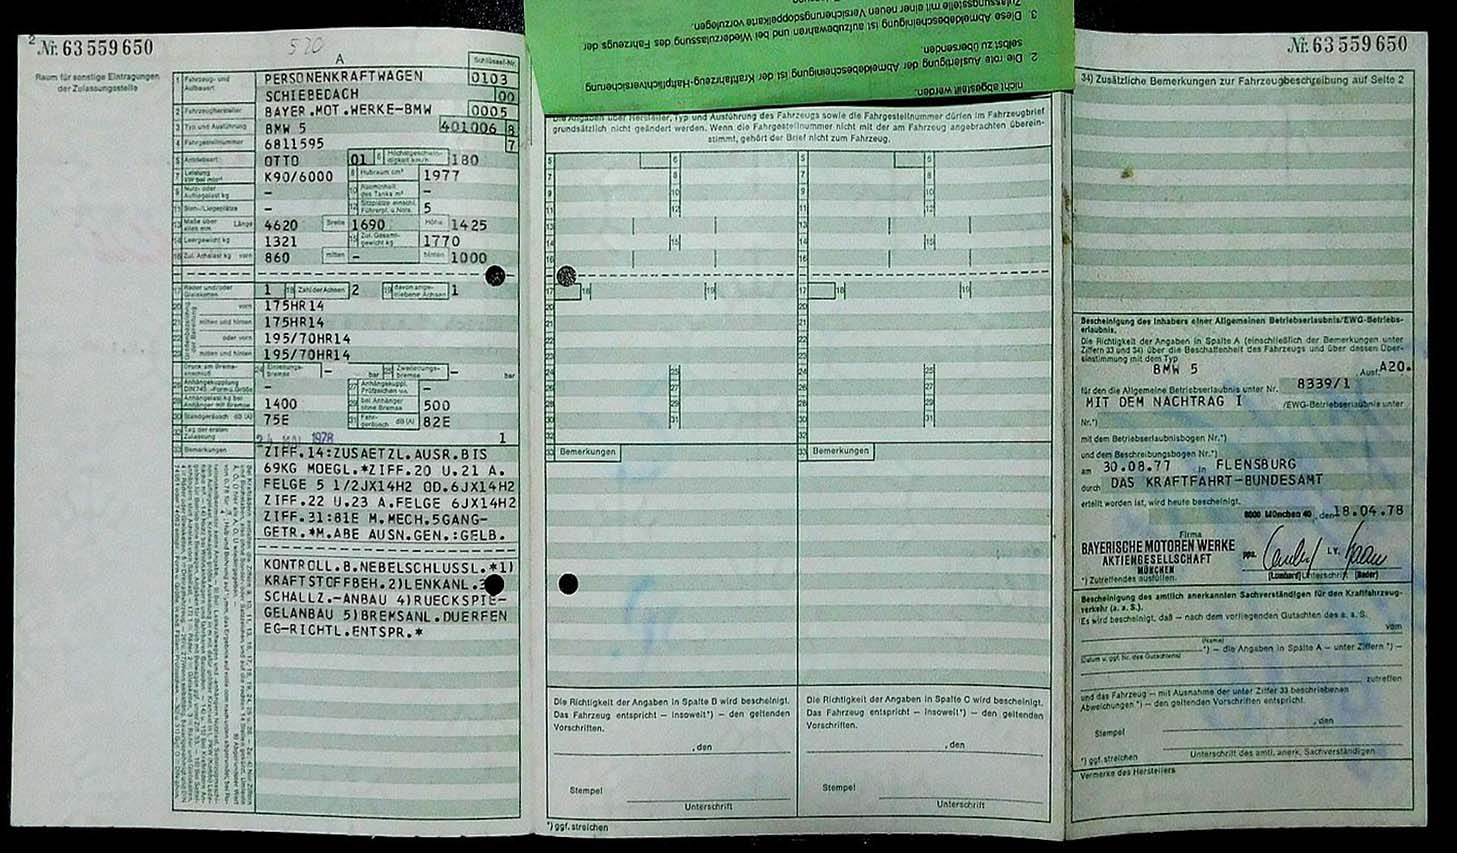 2 Nr. 63 559 650
520
Raum für sonstige Eintragungen
der Zulassungsstelle
A
Schlüssel-Nr.
1 Fahrzeug- und Aufbauart PERSONENKRAFTWAGEN 0103
SCHIEBEDACH 00
2 Fahrzeughersteller BAYER.MOT.WERKE-BMW 0005
3 Typ und Ausführung BMW 5 401006 8
4 Fahrgestellnummer 6811595 7
5 Antriebsart OTTO 01 6 Höchstgeschwindigkeit km/h 180
7 Leistung K90/6000 8 Hubraum cm³ 1977
9 Nutz- oder Aufliegelast kg – 10 Rauminhalt des Tanks m³ –
11 Steh-/Liegeplätze – 12 Sitzplätze einschl. Führerpl. u. Nots. 5
13 Maße über alles mm Länge 4620 Breite 1690 Höhe 1425
14 Leergewicht kg 1321 15 Zul. Gesamtgewicht kg 1770
16 Zul. Achslast kg vorn 860 mitten – hinten 1000
17 Räder und/oder Gleisketten 1 18 Zahl der Achsen 2 19 davon angetriebene Achsen 1
20 vorn 175HR14
21 mitten und hinten 175HR14
22 oder vorn 195/70HR14
23 mitten und hinten 195/70HR14
Druck am Bremsanschluß 24 Einleitungsbremse – bar 25 Zweileitungsbremse – bar
26 Anhängekupplung DIN 740.-Form u. Größe – 27 Anhängekuppl. Prüfzeichen –
28 Anhängelast kg bei Anhänger mit Bremse 1400 29 bei Anhänger ohne Bremse 500
30 Standgeräusch dB (A) 75E 31 Fahrgeräusch dB (A) 82E
32 Tag der ersten Zulassung 24. MAI 1978 1
33 Bemerkungen ZIFF.14:ZUSAETZL.AUSR.BIS
69KG MOEGL.*ZIFF.20 U.21 A.
FELGE 5 1/2JX14H2 OD.6JX14H2
ZIFF.22 U.23 A.FELGE 6JX14H2
ZIFF.31:81E M.MECH.5GANG-
GETR.*M.ABE AUSN.GEN.:GELB.
KONTROLL.B.NEBELSCHLUSSL.*1)
KRAFTSTOFFBEH.2)LENKANL.3
SCHALLZ.-ANBAU 4)RUECKSPIE-
GELANBAU 5)BREMSANL.DUERFEN
EG-RICHTL.ENTSPR.*
nicht abgestellt werden.
2 Die rote Ausfertigung der Abmeldebescheinigung ist der Kraftfahrzeug-Haftpflichtversicherung
selbst zu übersenden.
3. Diese Abmeldebescheinigung ist aufzubewahren und bei Wiederzulassung des Fahrzeugs der
Zulassungsstelle mit einer neuen Versicherungsdoppelkarte vorzulegen.
Die Angaben über Hersteller, Typ und Ausführung des Fahrzeugs sowie die Fahrgestellnummer dürfen im Fahrzeugbrief
grundsätzlich nicht geändert werden. Wenn die Fahrgestellnummer nicht mit der am Fahrzeug angebrachten überein-
stimmt, gehört der Brief nicht zum Fahrzeug.
5 6 5 6
7 8 7 8
9 10 9 10
11 12 11 12
13 13
14 15 14 15
16 16
17 18 19 17 18 19
20 20
21 21
22 22
23 23
24 25 24 25
26 27 26 27
28 29 28 29
30 31 30 31
32 32
33 Bemerkungen 33 Bemerkungen
Die Richtigkeit der Angaben in Spalte B wird bescheinigt.
Das Fahrzeug entspricht – insoweit*) – den geltenden
Vorschriften.
, den
Stempel
Unterschrift
*) ggf. streichen
Die Richtigkeit der Angaben in Spalte C wird bescheinigt.
Das Fahrzeug entspricht – insoweit*) – den geltenden
Vorschriften.
, den
Stempel
Unterschrift
Nr. 63 559 650
34) Zusätzliche Bemerkungen zur Fahrzeugbeschreibung auf Seite 2
Bescheinigung des Inhabers einer Allgemeinen Betriebserlaubnis/EWG-Betriebs-
erlaubnis.
Die Richtigkeit der Angaben in Spalte A (einschließlich der Bemerkungen unter
Ziffern 33 und 34) über die Beschaffenheit des Fahrzeugs und über dessen Über-
einstimmung mit dem Typ
BMW 5 , Ausf. A20.
für den die Allgemeine Betriebserlaubnis unter Nr. 8339/1
MIT DEM NACHTRAG I /EWG-Betriebserlaubnis unter
Nr.*)
mit dem Betriebserlaubnisbogen Nr.*)
und dem Beschreibungsbogen Nr.*)
am 30.08.77 in FLENSBURG
durch DAS KRAFTFAHRT-BUNDESAMT
erteilt worden ist, wird heute bescheinigt.
8000 München 40 , den 18.04.78
Firma
BAYERISCHE MOTOREN WERKE
AKTIENGESELLSCHAFT
MÜNCHEN
ppa. i.V.
(Lombard) Unterschrift (Bader)
*) Zutreffendes ausfüllen.
Bescheinigung des amtlich anerkannten Sachverständigen für den Kraftfahrzeug-
verkehr (a. a. S.).
Es wird bescheinigt, daß – nach dem vorliegenden Gutachten des a. a. S.
vom
(Name)
*) – die Angaben in Spalte A – unter Ziffern *) –
(Datum u. ggf. Nr. des Gutachtens)
zutreffen
und das Fahrzeug – mit Ausnahme der unter Ziffer 33 beschriebenen
Abweichungen *) – den geltenden Vorschriften entspricht.
, den
Stempel
Unterschrift des amtl. anerk. Sachverständigen
*) ggf. streichen
Vermerke des Herstellers